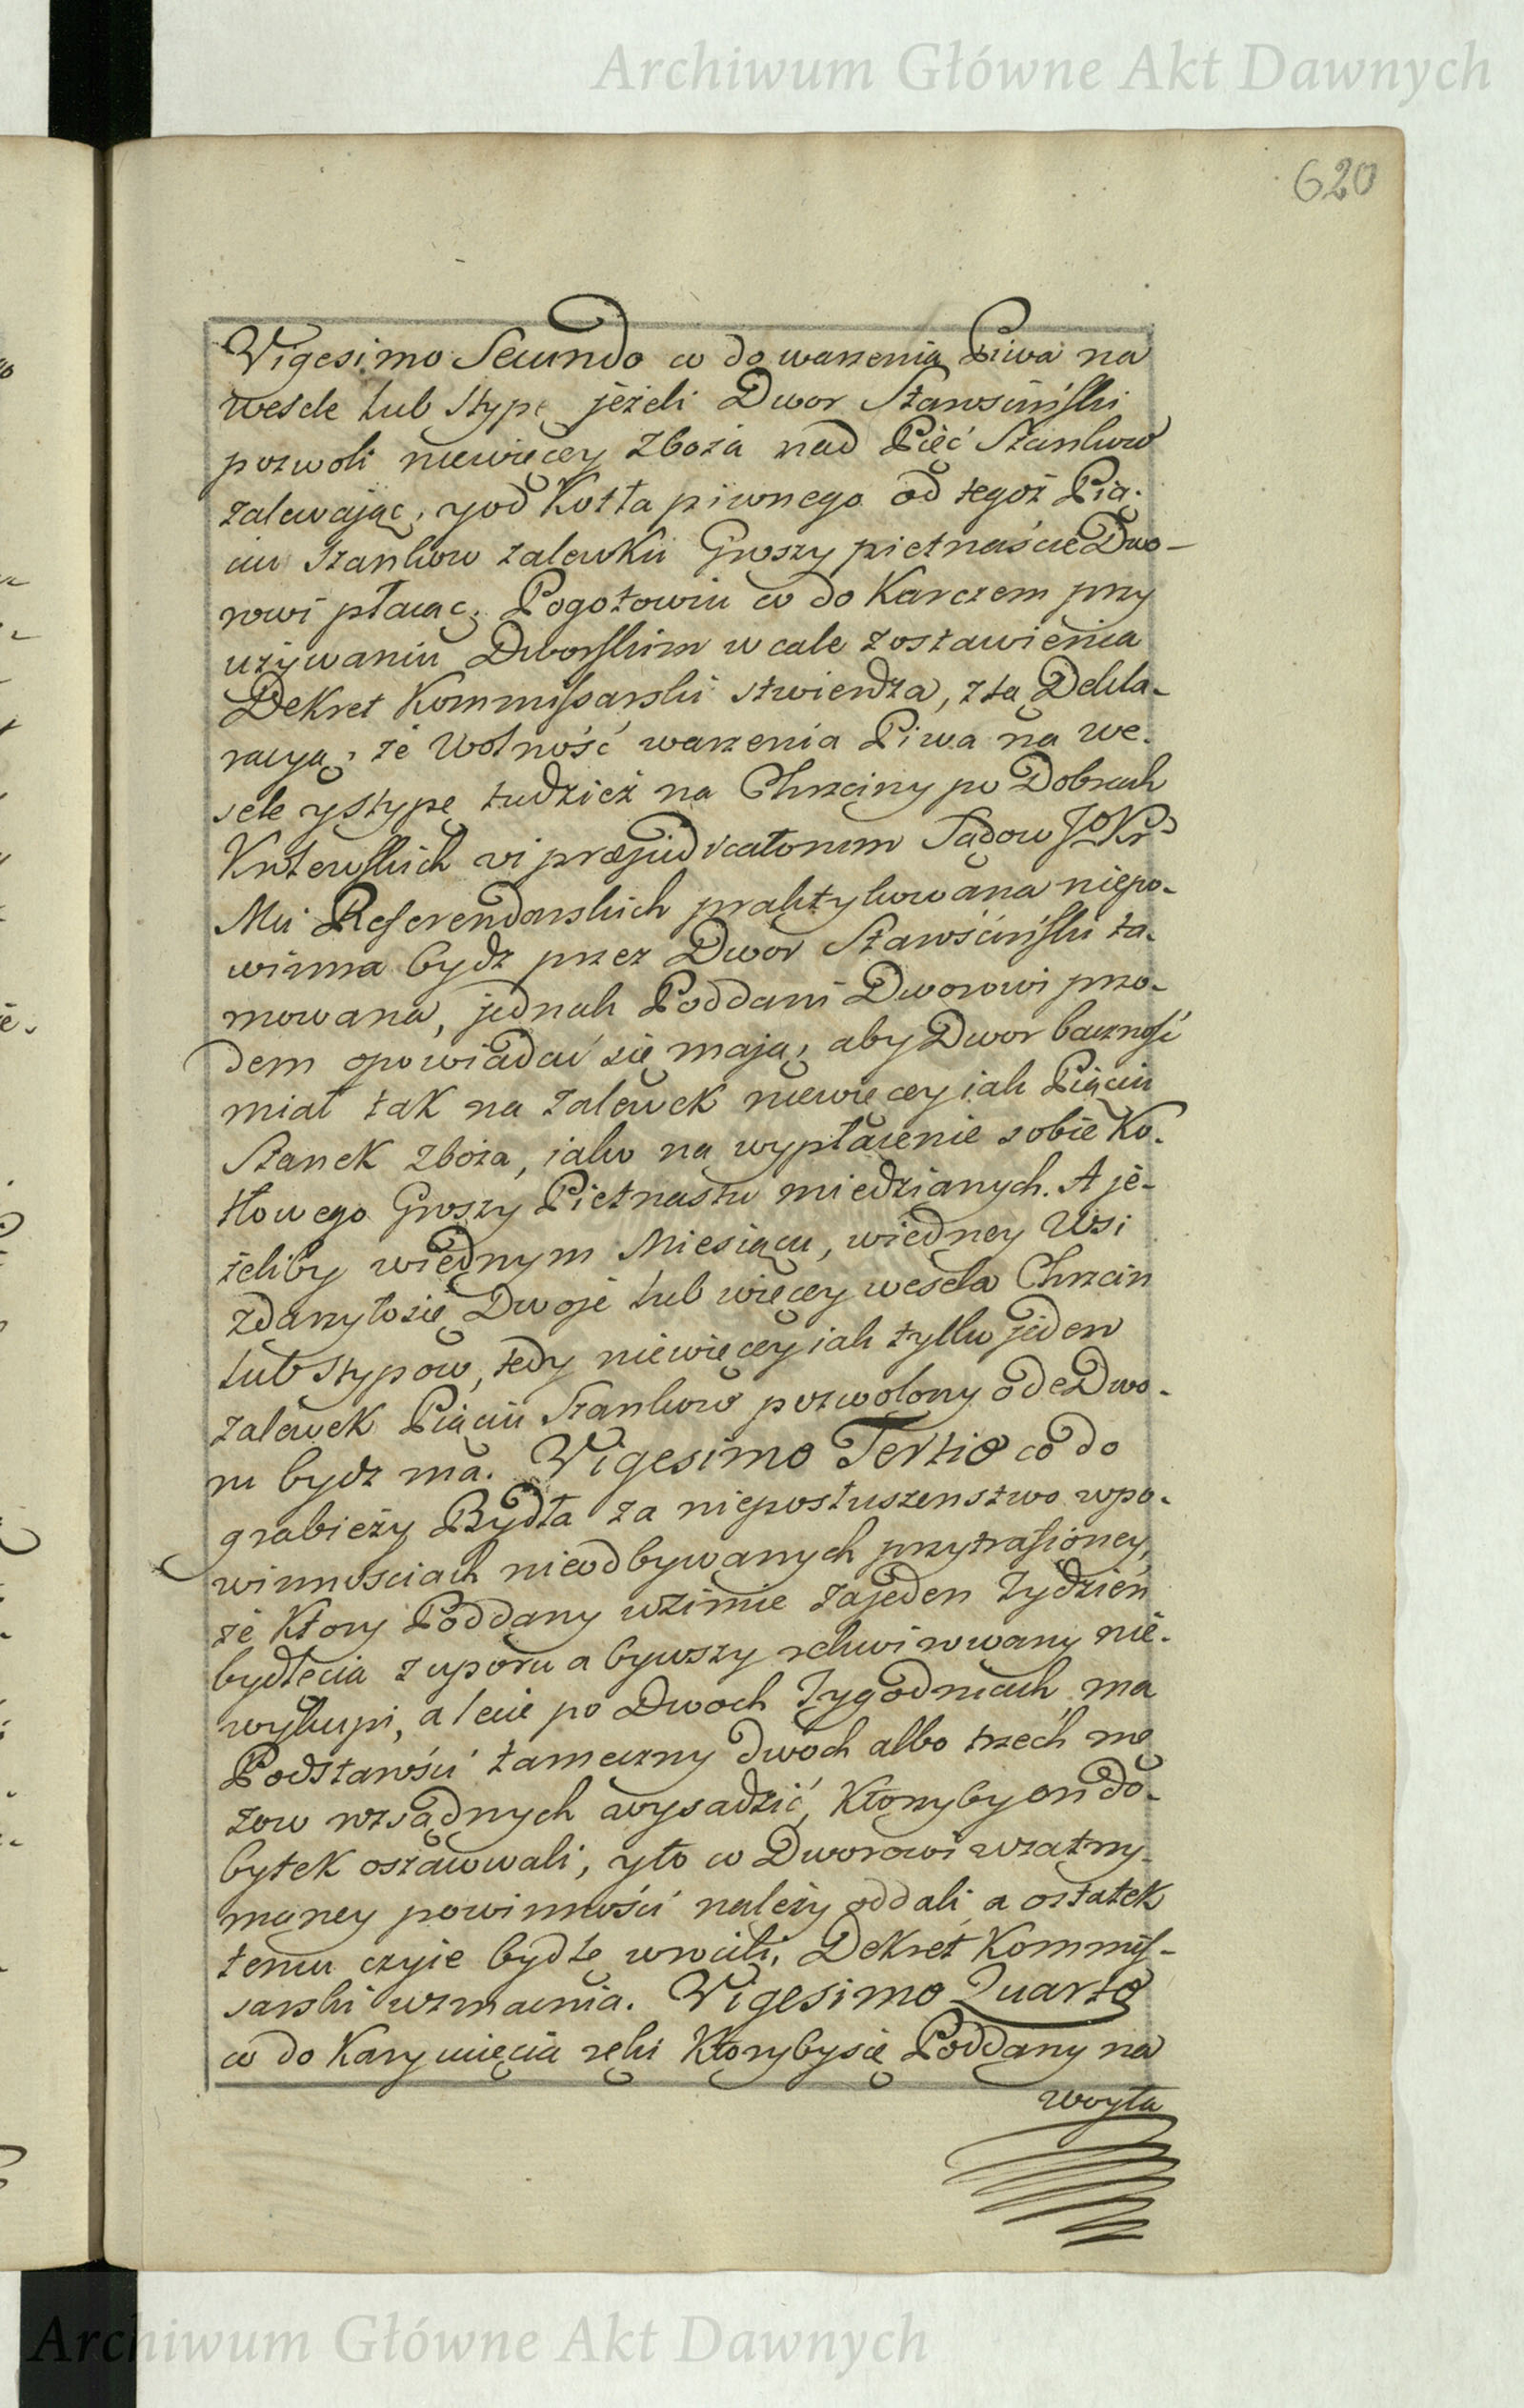 Archiwum Główne Akt Dawnych
620
Vigesimo Secundo co do warzenia Piwa na
wesele lub Stypę jeżeli Dwor Starościński
pozwoli niewięcey Zboża nad Pięć Szankow
zalewając, y od Kotła piwnego od tegoż Pią-
ciu Szankow zalewku Groszy pietnaście Dwo-
rowi płacąc, Pogotowiu co do Karczem przy
używaniu Dworskim w cale zostawienia
Dekret Kommissarski stwierdza, z tą Dekla-
racyą, że Wolność warzenia Piwa na we-
sele y Stypę tudzież na Chrzciny po Dobrach
Krolewskich vi præjudicatorum Sądow JoKr
Mci Referendarskich praktykowana niepo-
winna bydz przez Dwor Starościński ta-
mowana, jednak Poddani Dworowi przo-
dem opowiadać się mają, aby Dwor baczność
miał tak na zalewek niewięcey iak Piąciu
Szanek zboża, iako na wypłacenie sobie Ko-
tłowego Groszy Pietnastu miedzianych. A je-
żeliby wiednym Miesiącu, wiedney Wsi
zdarzyło się Dwoje lub więcey wesela Chrzcin
lub Stypow, tedy niewięcey iak tylko jeden
zalewek Piąciu Szankow pozwolony ode Dwo-
ru bydz ma. Vigesimo Tertio co do
grabieży Bydła za nieposłuszenstwo wpo-
winnosciach nieodbywanych przytrafioney,
że Ktory Poddany wzimie zajeden Tydzień
bydlęcia z uporu a bywszy rekwirowany nie-
wykupi, a lecie po Dwoch Tygodniach, ma
Podstarości tameczny dwoch albo trzech mę
zow rozsądnych wysadzić, Ktorzyby on do-
bytek oszacowali, y to co Dworowi wzatrzy-
maney powinności należy oddali, a ostatek
temu czyie bydlę wrocili, Dekret Kommis-
sarski wzmacnia. Vigesimo Quarto
co do Kary ucięcia ręki Ktoryby się Poddany na
woyta
Archiwum Główne Akt Dawnych